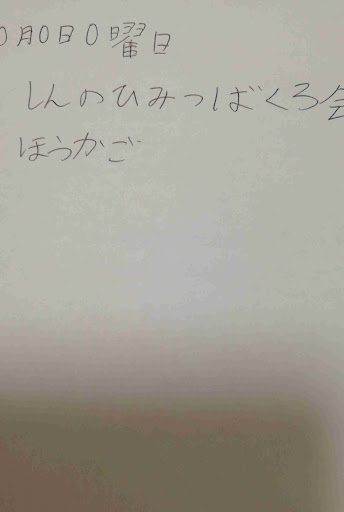 0月0日0曜日
しんのひみつばくろ会
ほうかご